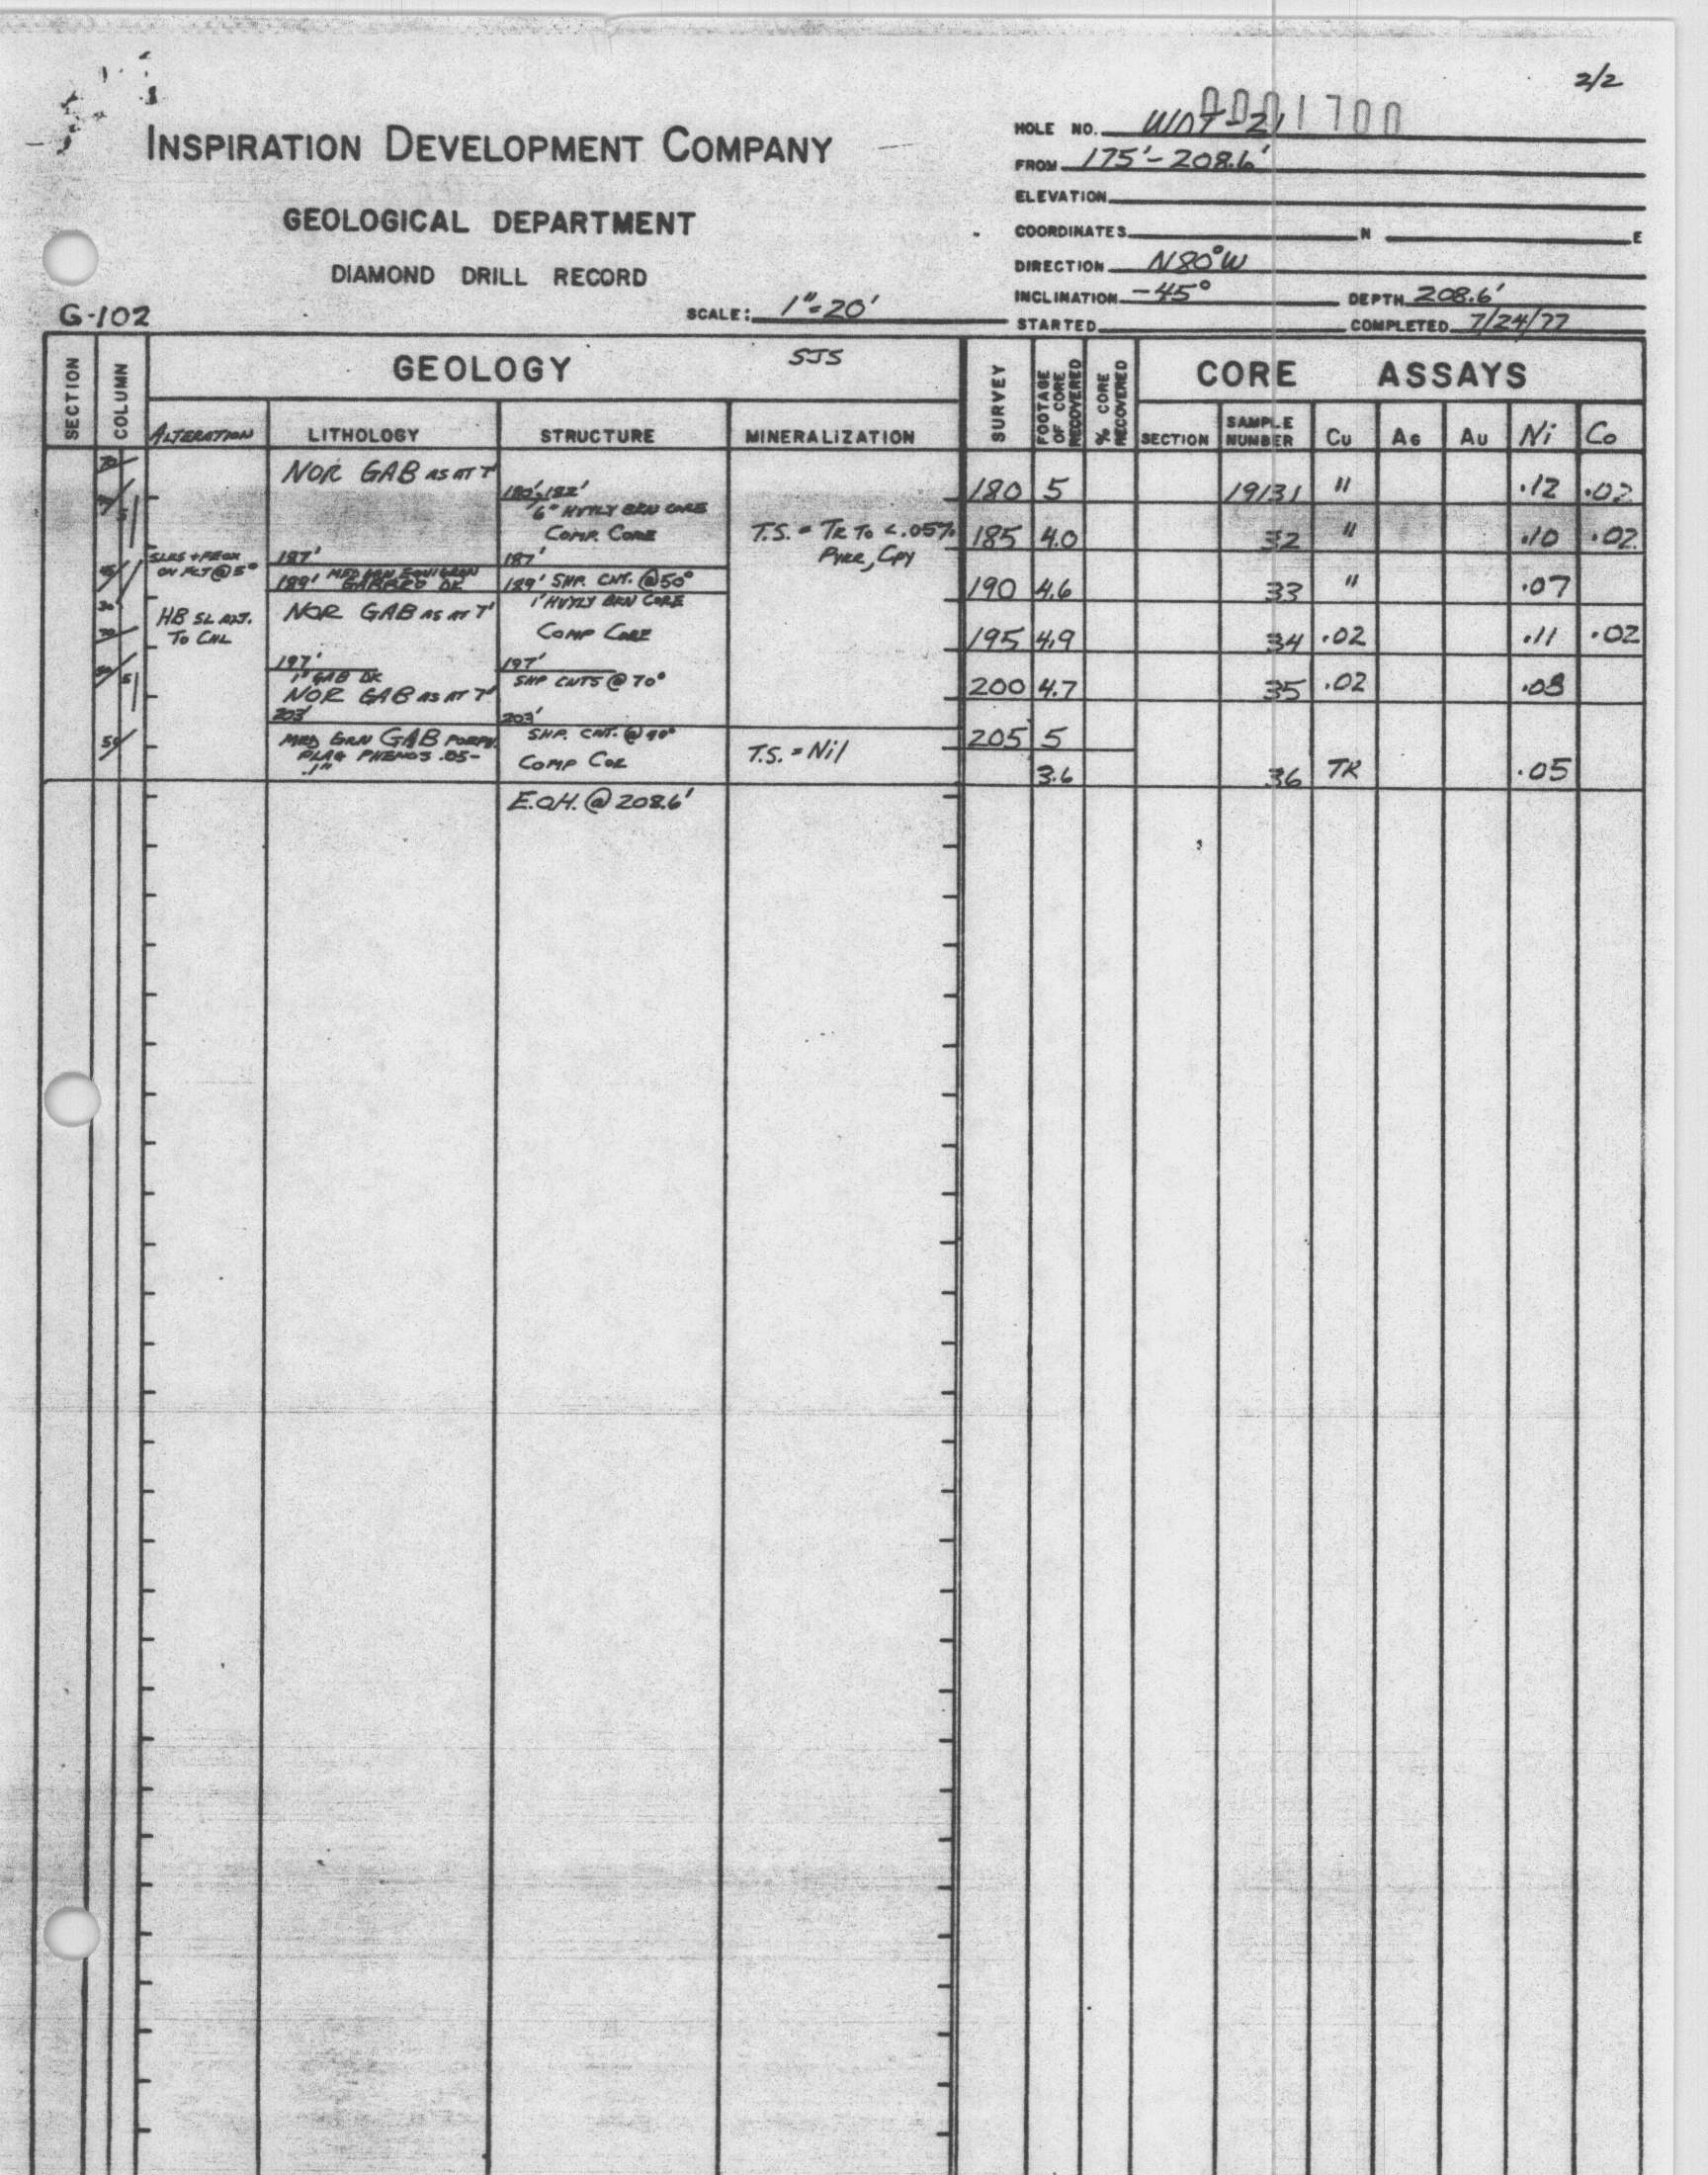 2/2
0001700
INSPIRATION DEVELOPMENT COMPANY
GEOLOGICAL DEPARTMENT
DIAMOND DRILL RECORD
G-102
SCALE: 1"=20'
HOLE NO. WAT-21
FROM 175'-208.6'
ELEVATION
COORDINATES N E
DIRECTION N80°W
INCLINATION -45° DEPTH 208.6'
STARTED COMPLETED 7/24/77
SECTION COLUMN GEOLOGY SJS SURVEY FOOTAGE OF CORE RECOVERED % CORE RECOVERED CORE ASSAYS
ALTERATION LITHOLOGY STRUCTURE MINERALIZATION SECTION SAMPLE NUMBER Cu AG AU Ni Co
NOR GAB AS AT 7'
180'-182'
6" HVYLY BRN CORE
180 5 19131 " .12 .02
COMP. CORE
T.S. = TR TO <.05%
PYRR, CPY
185 4.0 32 " .10 .02
ON FCT @ 5°
187' 187'
MED GRN EQUIGRAN
189' GABBRO DK 189' SHP. CNT. @ 50°
190 4.6 33 " .07
HB SL ADJ.
TO CNL
NOR GAB AS AT 7'
1' HVYLY BRN CORE
COMP CORE
195 4.9 34 .02 .11 .02
197' 197'
1" GAB DK SHP CNTS @ 70°
NOR GAB AS AT 7'
200 4.7 35 .02 .08
203' 203'
MED GRN GAB PORPH.
PLAG PHENOS .05-
.1"
SHP. CNT. @ 90°
COMP COR
T.S. = Nil
205 5
3.6 36 TR .05
E.O.H. @ 208.6'